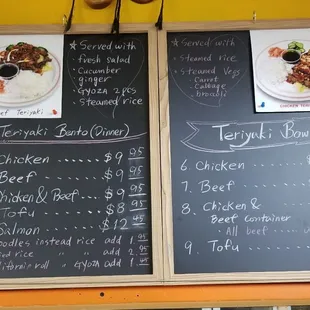 Served with
fresh salad
Cucumber
ginger
Gyoza 2pcs
Steamed rice
Teriyaki
Teriyaki Bento (Dinner)
Chicken ...... $9 95
Beef ...... $9 95
Chicken & Beef .... $9 95
Tofu ...... $8 95
Salmon ...... $12 45
noodles instead rice add 1
rice " " add 2
roll " Gyoza add 1
Served with
Steamed rice
Steamed Vegs
Carrot
Cabbage
broccoli
CHICKEN
Teriyaki Bow
6. Chicken
7. Beef
8. Chicken &
Beef container
All beef
9. Tofu